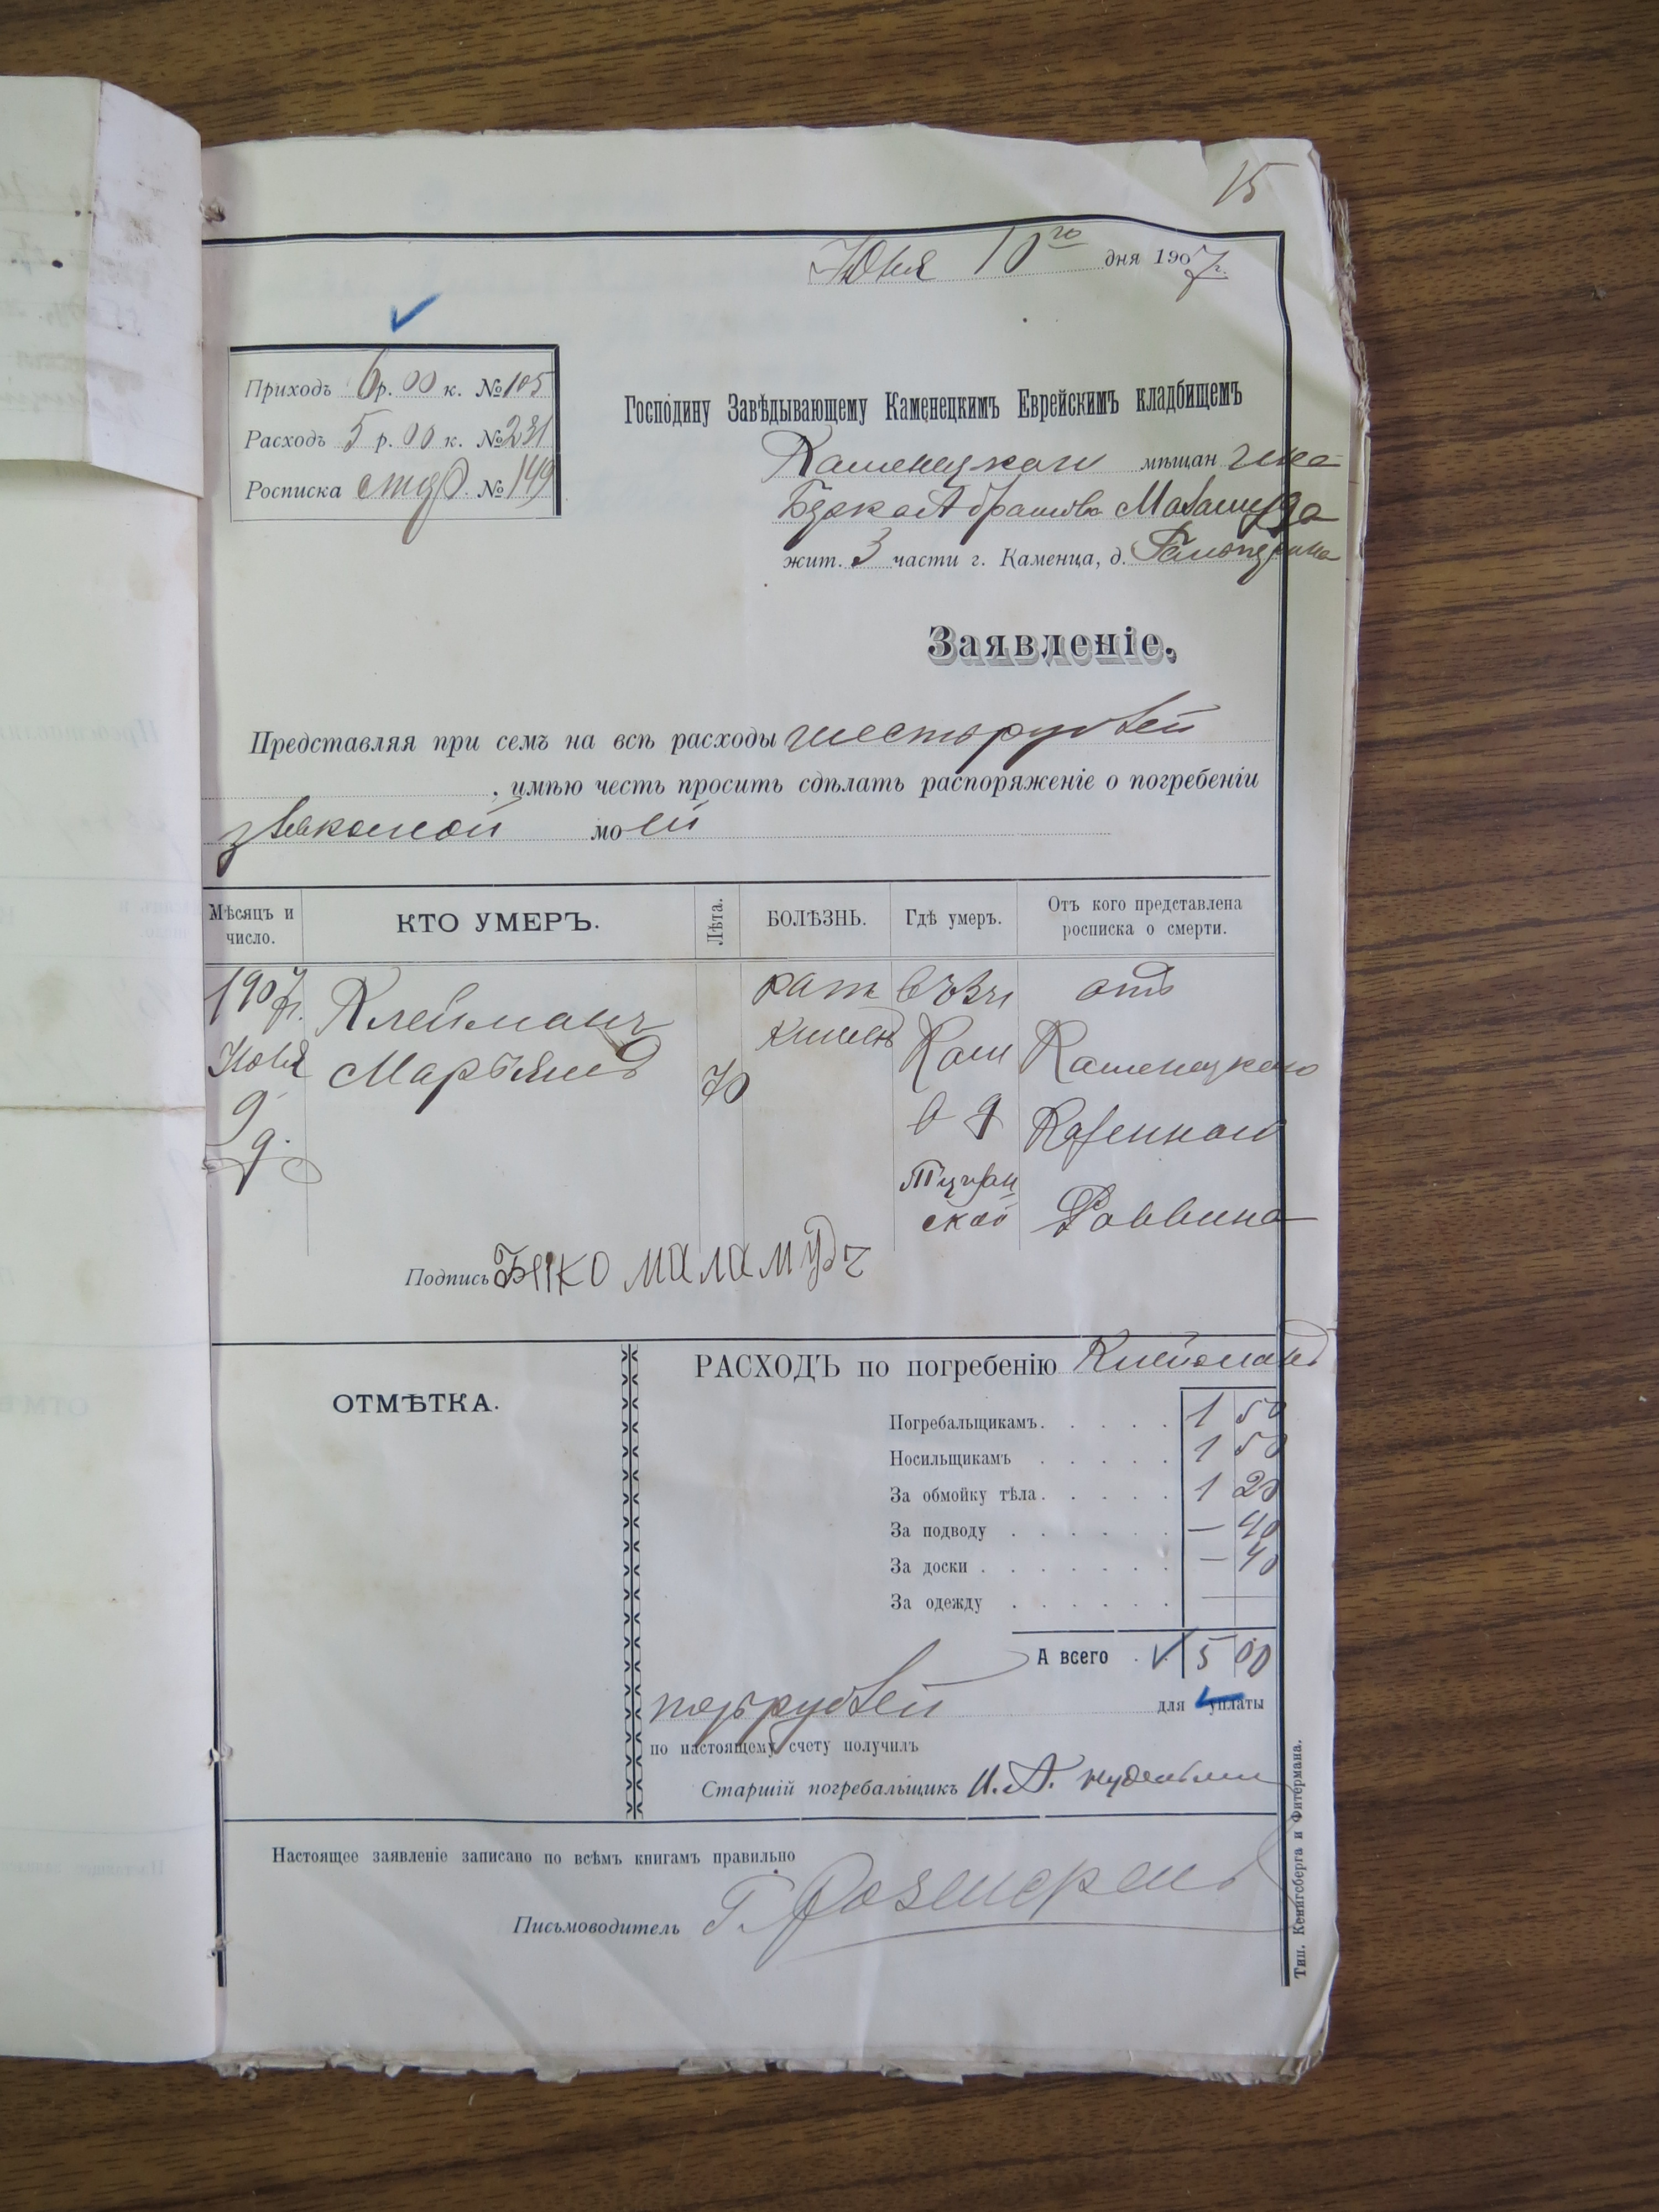 15
Юня 10го дня 1907 г.
Приходъ 6 р. 00 к. № 105
Расходъ 5 р. 00 к. № 231
Росписка № 149
Господину Завѣдывающему Каменецкимъ Еврейскимъ кладбищемъ
мѣщан
жит. 3 части г. Каменца, д.
Заявленіе.
Представляя при семъ на всѣ расходы шесть рублей
, имѣю честь просить сдѣлать распоряженіе о погребеніи
знакомой моей
Мѣсяцъ и число.
КТО УМЕРЪ.
Лѣта.
БОЛѢЗНЬ.
Гдѣ умеръ.
Отъ кого представлена росписка о смерти.
1907 г.
Юня
9
д.
Клейманъ
70
рак
отъ
Каменецкаго
Казеннаго
Раввина
Подпись маламудъ
ОТМѢТКА.
РАСХОДЪ по погребенію Клейманъ
Погребальщикамъ. 1 50
Носильщикамъ 1 50
За обмойку тѣла. 1 20
За подводу — 40
За доски — 40
За одежду
А всего 5 00
пять рублей для уплаты
по настоящему счету получилъ
Старшій погребальщикъ И. А.
Настоящее заявленіе записано по всѣмъ книгамъ правильно
Письмоводитель Г.
Тип. Кенигсберга и Фитермана.